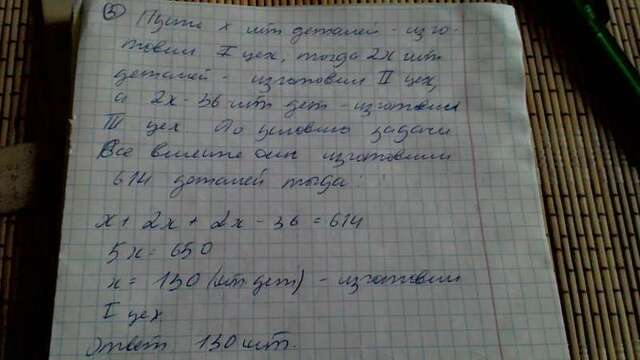 ⑤ Пусть x шт деталей - изго-
товил I цех, тогда 2x шт
деталей - изготовил II цех,
а 2x - 36 шт дет - изготовил
III цех. По условию задачи
Все вместе они изготовили
614 деталей тогда:
x + 2x + 2x - 36 = 614
5x = 650
x = 130 (шт дет) - изготовил
I цех
Ответ 130 шт.